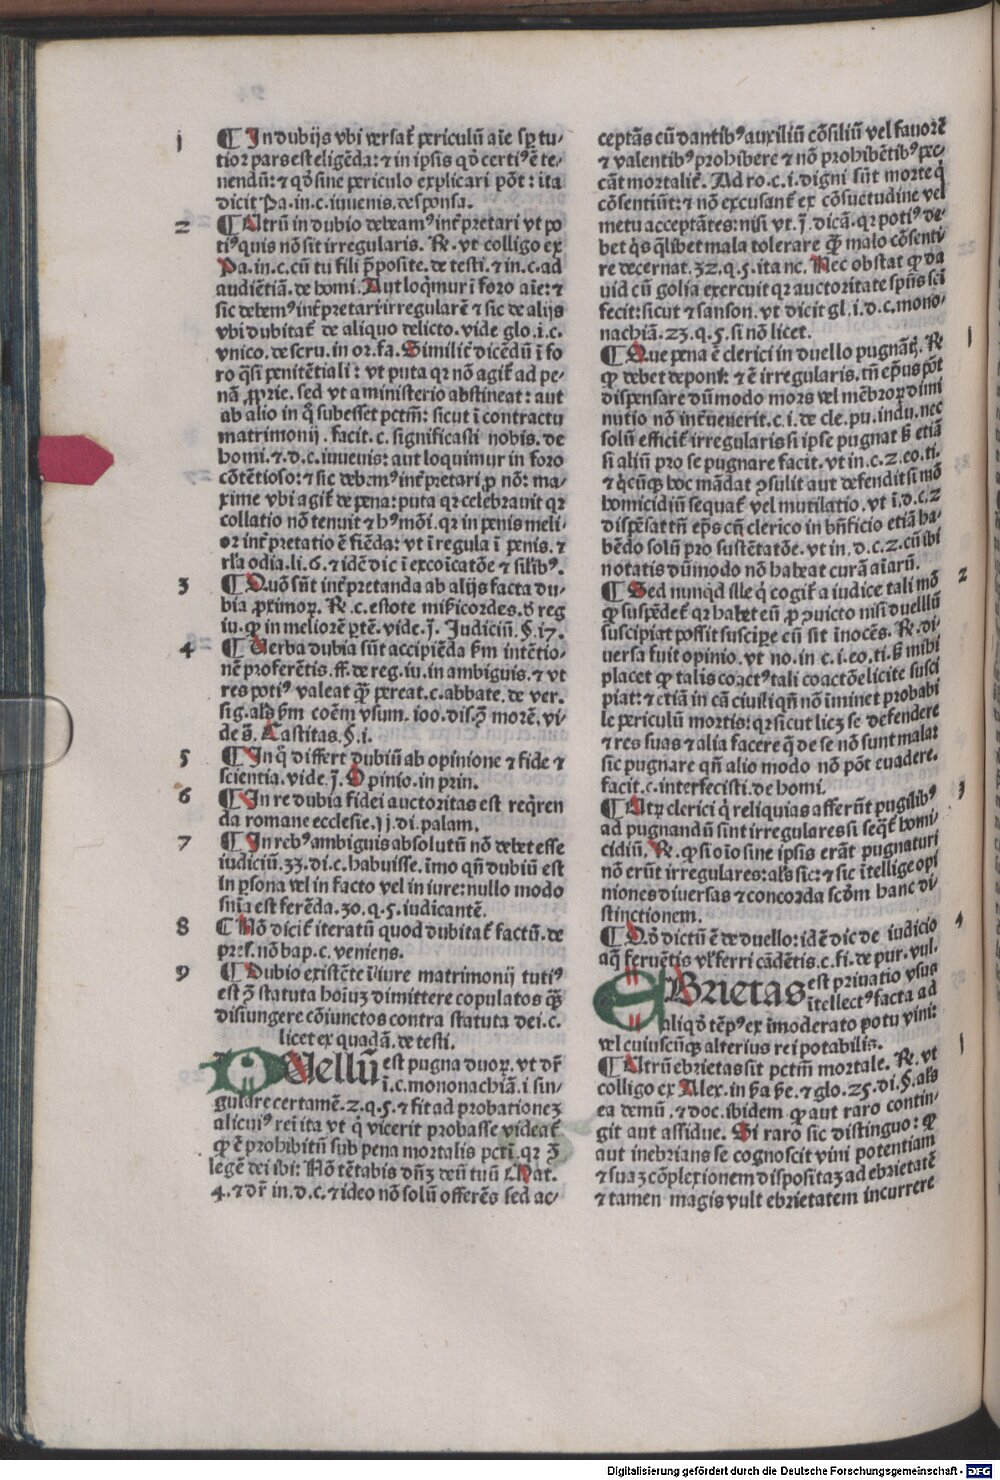 1
¶ In dubijs vbi versat̃ periculũ aı̃e sꝑ tu-
tior pars est eligẽda: ⁊ in ipsis qđ certiꝰ ẽ te-
nendũ: ⁊ qđ sine periculo explicari põt: ita
dicit Pa. in. c. iuvenis. de sponsa.
2
¶ Utrũ in dubio debeamꝰ int̃pretari vt po
tiꝰ quis nõ sit irregularis. R̃. vt colligo ex
Pa. in. c. cũ tu fili p̃posite. de testi. ⁊ in. c. ad
audiẽtiã. de homi. Aut loq̃mur ĩ foro aı̃e: ⁊
sic debemꝰ int̃pretari irregularẽ ⁊ sic de alijs
vbi dubitat̃ de aliquo delicto. vide glo. i. c.
vnico. de scru. in or. fa. Similit̃ dicẽdũ ĩ fo
ro q̃si penitẽtiali: vt puta qꝛ nõ agit̃ ad pe-
nã ꝓprie. sed vt a ministerio abstineat: aut
ab alio in q̃ subesset pctm̃: sicut ĩ contractu
matrimonij. facit. c. significasti nobis. de
homi. ⁊. d. c. iuuenis: aut loquimur in foro
cõtẽtioso: ⁊ sic debemꝰ int̃pretari ꝓ nõ: ma-
xime vbi agit̃ de pena: puta qꝛ celebravit qꝛ
collatio nõ tenuit ⁊ hꝰmõi. qꝛ in penis meli-
or int̃pretatio ẽ fiẽda: vt ĩ regula ĩ penis. ⁊
rl̃a odia. li. 6. ⁊ idẽ dic ĩ excõicatõe ⁊ sil̃ibꝰ.
3
¶ Quõ sũt int̃pretanda ab alijs facta du-
bia ꝓximoꝝ. R̃. c. estote mis̃icordes. đ reg
iu. ꝙ in meliorẽ ꝑtẽ. vide. j̃. Judiciũ. §. 17.
4
¶ Verba dubia sũt accipiẽda s̃m intẽtio-
nẽ proferẽtis. ff. de reg. iu. in ambiguis. ⁊ vt
res potiꝰ valeat ꝙ̃ pereat. c. abbate. de ver.
sig. al̃s s̃m coẽm vsum. 100. dis. ꝯ̃ morẽ. vi-
de s̃. Castitas. §. i.
5
¶ In q̃ differt dubiũ ab opinione ⁊ fide ⁊
scientia. vide. j̃. Opinio. in prin.
6
¶ In re dubia fidei auctoritas est req̃ren
da romane ecclesie. 11. di. palam.
7
¶ In rebꝰ ambiguis absolutũ nõ debet esse
iudiciũ. 33. di. c. habuisse. ĩmo qñ dubiũ est
in ꝑsona vel in facto vel in iure: nullo modo
sñia est ferẽda. 30. q. 5. iudicantẽ.
8
¶ Nõ dicit̃ iteratũ quod dubitat̃ factũ. de
pres̃. nõ bap. c. veniens.
9
¶ Dubio existẽte ĩ iure matrimonij tutiꝰ
est ꝯ̃ statuta hoı̃uʒ dimittere copulatos ꝙ̃
disiungere cõiunctos contra statuta dei. c.
licet ex quadã. de testi.
DUellũ est pugna duoꝝ. vt dr̃
ĩ. c. monomachiã. i sin-
gulare certamẽ. 2. q. 5. ⁊ fit ad probationeʒ
alicuiꝰ rei ita vt q̃ vicerit probasse videat̃
ꝙ ẽ prohibitũ sub pena mortalis pcti̇̃. qꝛ ꝯ̃
legẽ dei ibi: Nõ tẽtabis dñʒ deũ tuũ Mat.
4. ⁊ dr̃ in. d. c. ⁊ ideo nõ solũ offerẽs sed ac-
ceptãs cũ dantibꝰ auxiliũ cõsiliũ vel fauorẽ
⁊ valentibꝰ prohibere ⁊ nõ prohibẽtibꝰ pec-
cãt mortalit̃. Ad ro. c. i. digni sũt morte q̃
cõsentiũt: ⁊ nõ excusant̃ ex cõsuetudine vel
metu acceptãtes: nisi vt. j̃. dicã. qꝛ potiꝰ de-
bet q̃s q̃libet mala tolerare ꝙ̃ malo cõsenti-
re decernat. 32. q. 5. ita nc̃. Nec obstat ꝙ da
uid cũ golia exercuit qꝛ auctoritate spũs sci̇̃
fecit: sicut ⁊ sanson. vt dicit gl. i. d. c. mono-
nachiã. 23. q. 5. si nõ licet.
1
¶ Que pena ẽ clerici in duello pugnãt̃. R̃
ꝙ debet deponi̇̃. ⁊ ẽ irregularis. tñ ep̃us põt
dispensare dũmodo mors vel mẽbroꝝ dimi
nutio nõ int̃uenerit. c. i. de cle. pu. indu. nec
solũ efficit̃ irregularis si ipse pugnat s̃ etiã
si aliũ pro se pugnare facit. vt in. c. 2. eo. ti.
⁊ q̃cũqꝫ hoc mãdat ꝯsulit aut defendit si mõ
homicidiũ sequat̃ vel mutilatio. vt ĩ. d. c. 2
dispẽsat tñ ep̃s cũ clerico in bñficio etiã ha-
bẽdo solũ pro sustẽtatõe. vt in. d. c. 2. cũ ibi
notatis dũmodo nõ habeat curã aı̃arũ.
2
¶ Sed nunqd ille q̃ cogit̃ a iudice tali mõ
ꝙ suspẽdet̃ qꝛ habet eũ ꝓ ꝯuicto nisi duellũ
suscipiat possit suscipe cũ sit inocẽs. R̃. di-
uersa fuit opinio. vt no. in c. i. eo. ti. s̃ mihi
placet ꝙ talis coactꝰ tali coactõe licite susci
piat: ⁊ etiã in cã ciuili qñ nõ ĩminet probabi
le periculũ mortis: qꝛ sicut liceʒ se defendere
⁊ res suas ⁊ alia facere q̃ de se nõ sunt mala:
sic pugnare qñ alio modo nõ põt euadere.
facit. c. interfecisti. de homi.
3
¶ Utꝝ clerici q̃ reliquias afferũt pugilibꝰ
ad pugnandũ sint irregulares si seq̃t̃ homi-
cidiũ. R̃. ꝙ si oı̃o sine ipsis erãt pugnaturi
nõ erũt irregulares: al̃s sic: ⁊ sic ĩtellige opi
niones diuersas ⁊ concorda scđm hanc di-
stinctionem.
4
¶ Qđ dictũ ẽ de duello: idẽ dic de iudicio
aq̃ feruẽtis vl̃ ferri cãdẽtis. c. fi. de pur. vul.
EBrietas est priuatio vsus
ĩtellectꝰ facta ad
aliqđ tẽpꝰ ex ĩmoderato potu vini:
vel cuiuscũqꝫ alterius rei potabilis.
1
¶ Utrũ ebrietas sit pctm̃ mortale. R̃. vt
colligo ex Alex. in s̃a s̃e. ⁊ glo. 25. di. §. al̃s
ea demũ. ⁊ doc. ibidem ꝙ aut raro contin-
git aut assidue. Si raro sic distinguo: ꝙ
aut inebrians se cognoscit vini potentiam
⁊ suaʒ cõplexionem dispositaʒ ad ebrietatẽ
⁊ tamen magis vult ebrietatem incurrere
Digitalisierung gefördert durch die Deutsche Forschungsgemeinschaft - DFG